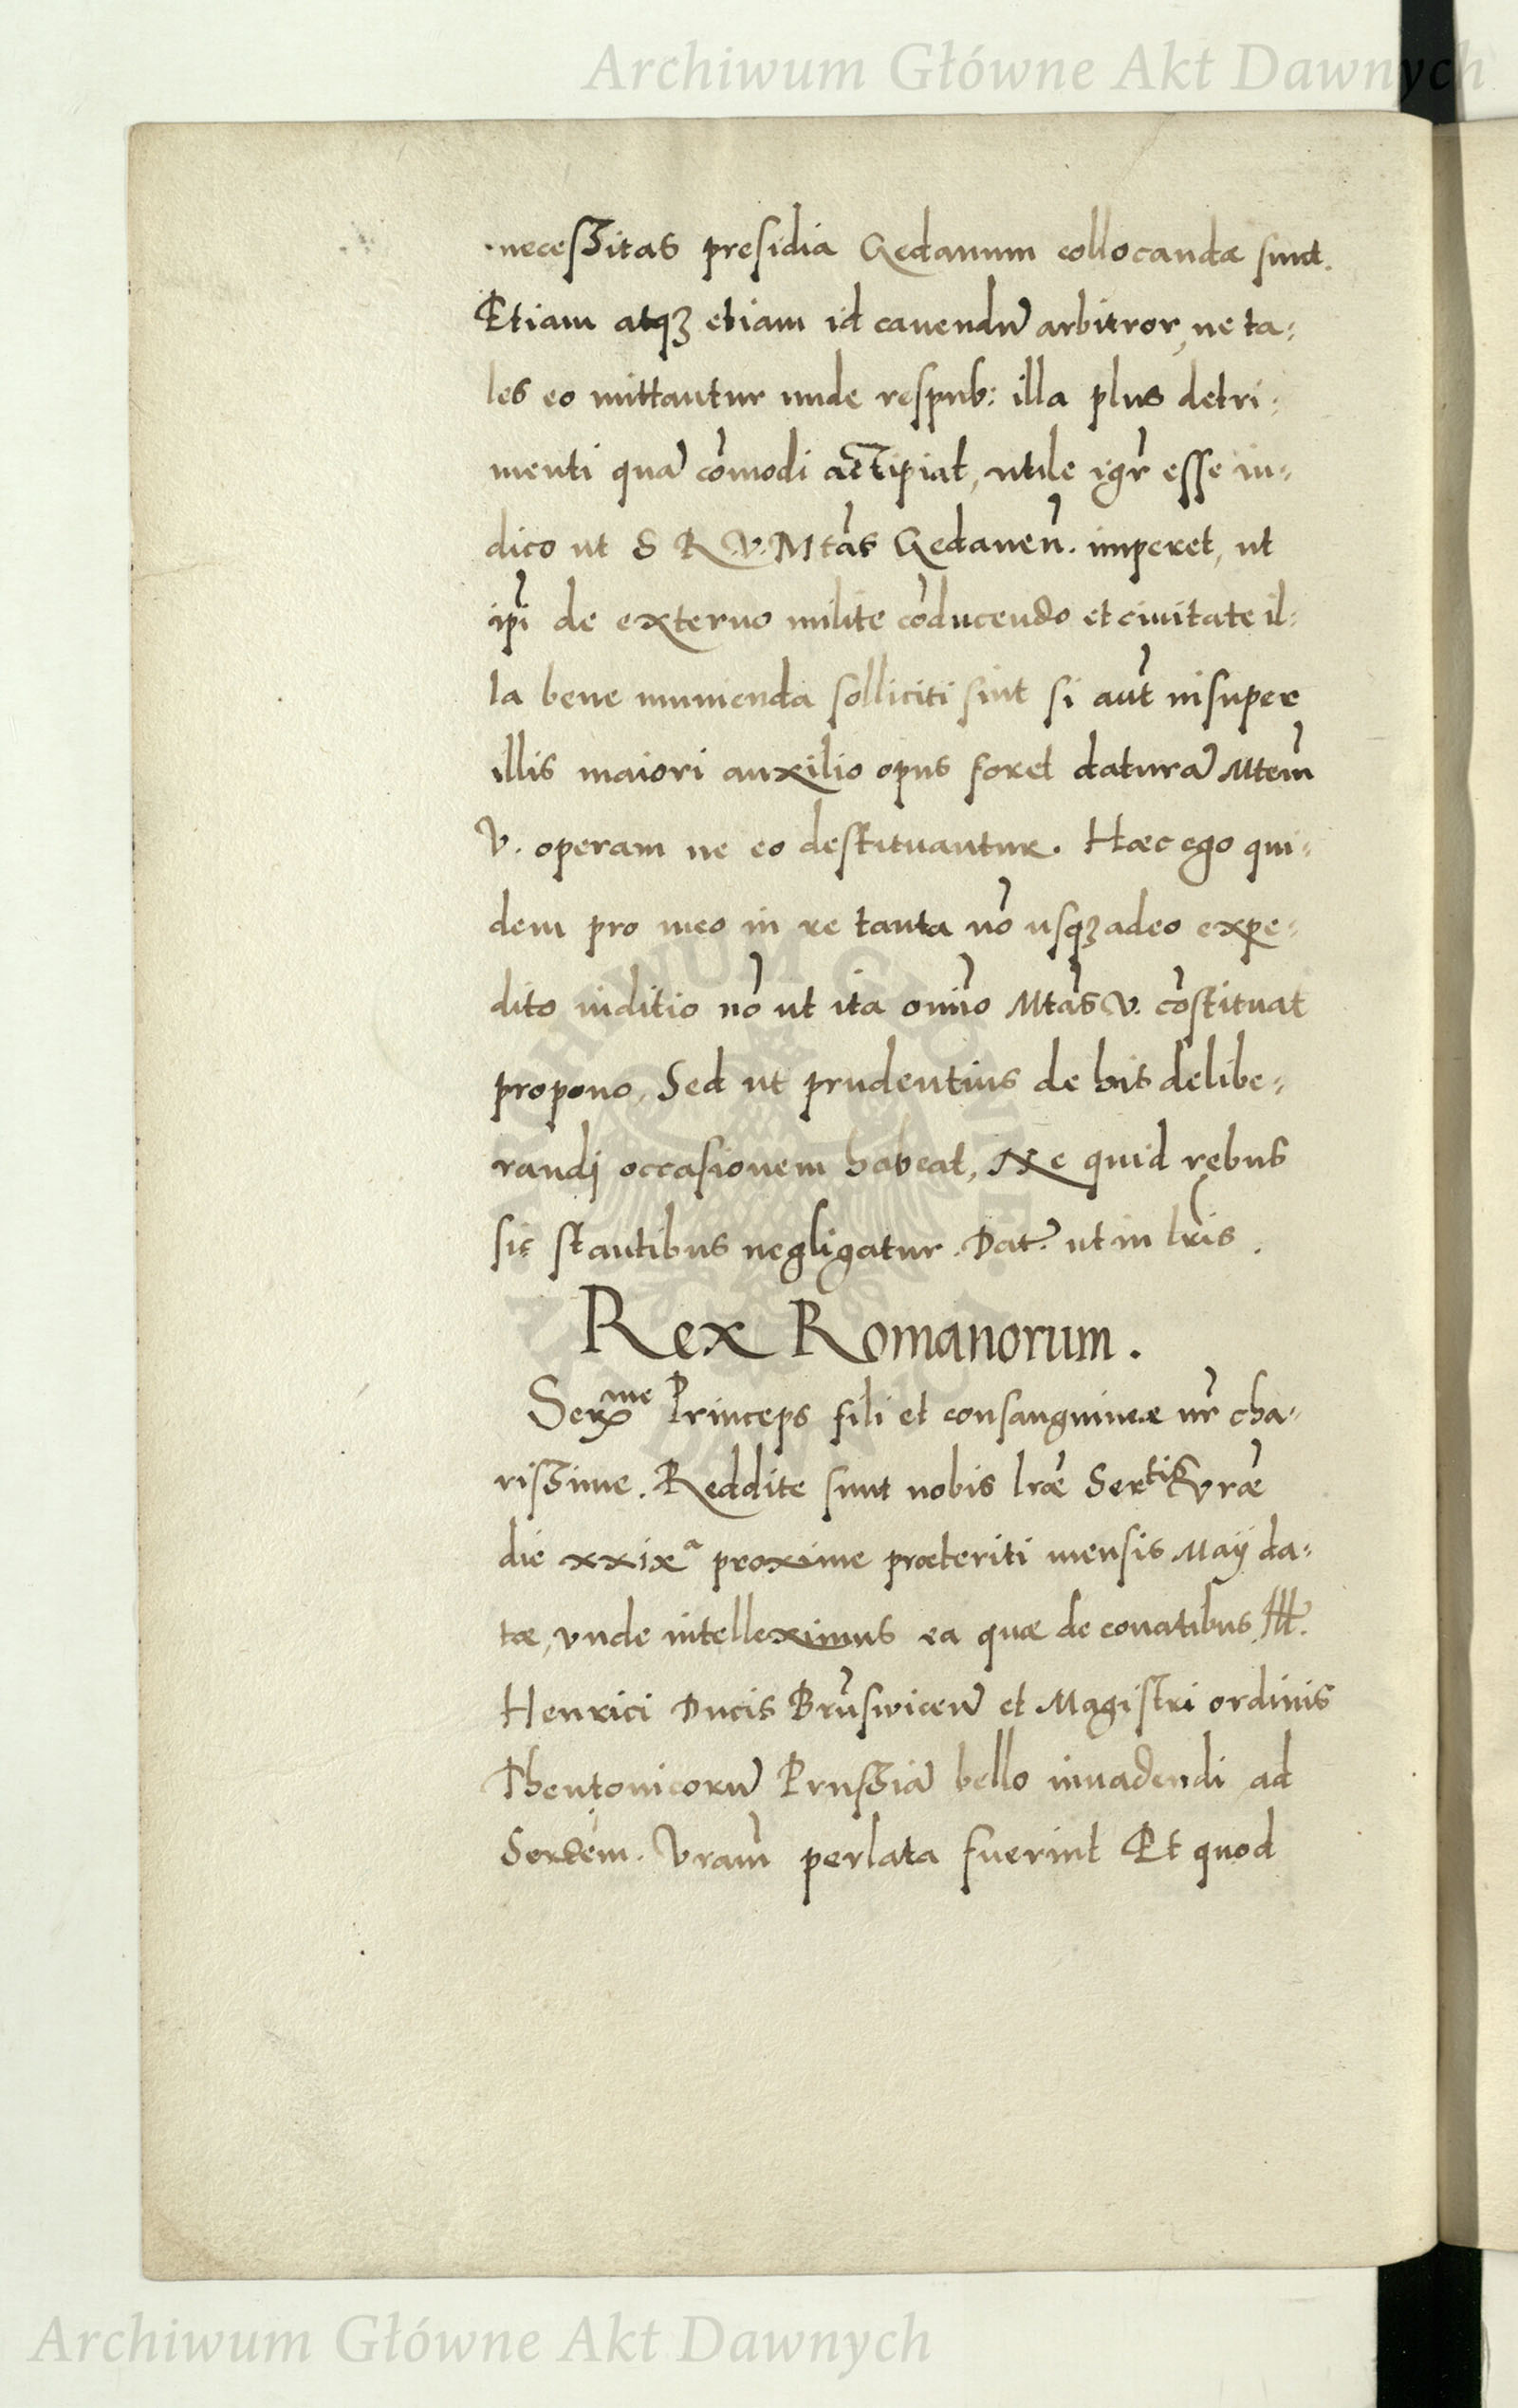 Archiwum Główne Akt Dawnych
necessitas presidia Gedanum collocanda sunt.
Etiam atqꝫ etiam id cauendũ arbitror, ne ta-
les eo mittantur unde respub: illa plus detri-
menti quã cõmodi accipiat, utile igr̃ esse iu-
dico ut S R V. Mtãs Gedaneñ. imperet, ut
ip̃i de externo milite cõducendo et ciuitate il-
la bene munienda solliciti sint si aut̃ insuper
illis maiori auxilio opus foret daturã Mtem̃
V. operam ne eo destituantur. Hæc ego qui-
dem pro meo in re tanta nõ usqꝫadeo expe-
dito iuditio nõ ut ita om̃ino Mtãs V. cõstituat
propono, Sed ut prudentius de his delibe-
randj occasionem habeat, Ne quid rebus
sic stantibus negligatur. Dat̃. ut in lr̃is.
Rex Romanorum.
Serme Princeps fili et consanguinee nr̃ cha-
rissime. Reddite sunt nobis lræ̃ Sertis vræ̃
die xxixa proxime præteriti mensis Maÿ da-
tæ, vnde intelleximus ea quæ de conatibus Ill.
Henrici Ducis Brũswiceñ et Magistri ordinis
Theutonicorũ Prussiã bello inuadendi ad
Sertem. Vram̃ perlata fuerint Et quod
Archiwum Główne Akt Dawnych